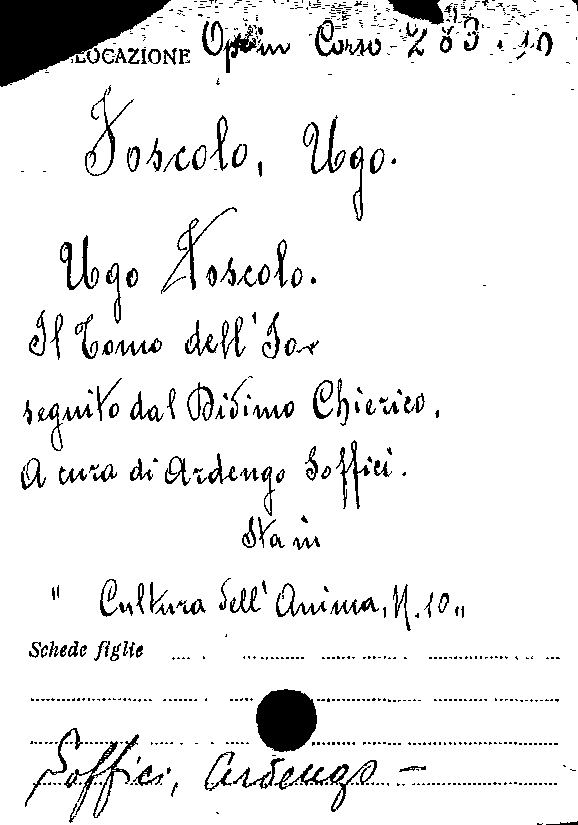 LOCAZIONE Op. in Corso 283.10
Foscolo, Ugo.
Ugo Foscolo.
Il Tomo dell'Io
seguito dal Didimo Chierico.
A cura di Ardengo Soffici.
Sta in
" Cultura dell'Anima, N. 10 "
Schede figlie
Soffici, Ardengo -